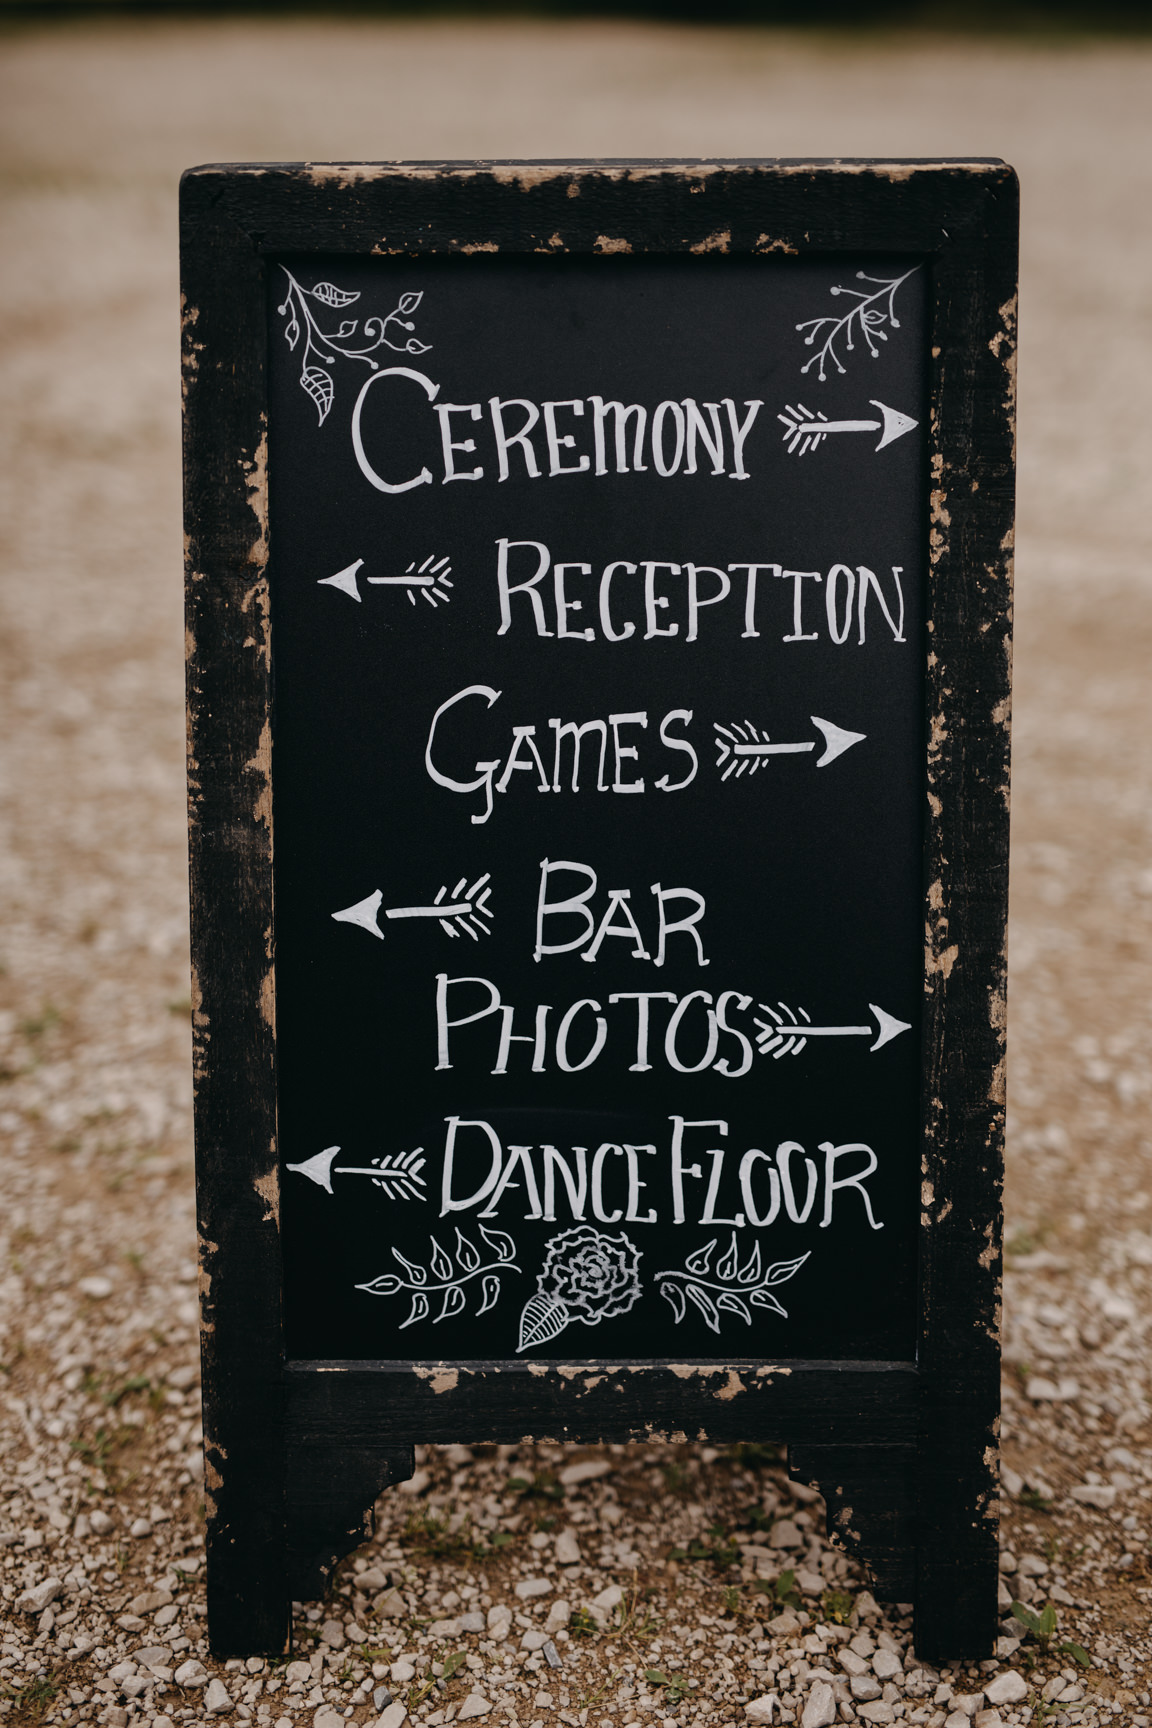 CEREMONY
RECEPTION
GAMES
BAR
PHOTOS
DANCE FLOOR